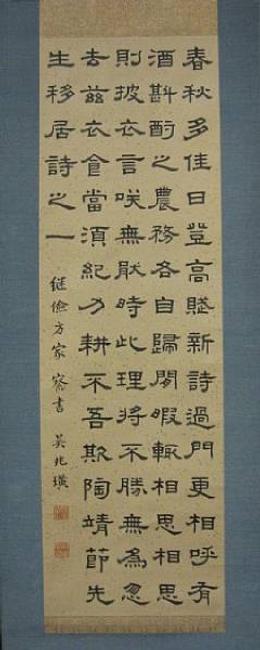 春秋多佳日登高賦新詩過門更相呼有
酒斟酌之農務各自歸閒暇輒相思相思
則披衣言咲無猒時此理將不勝無為忽
去茲衣食當須紀力耕不吾欺陶靖節先
生移居詩之一
继儉方家 察書 吴兆璜